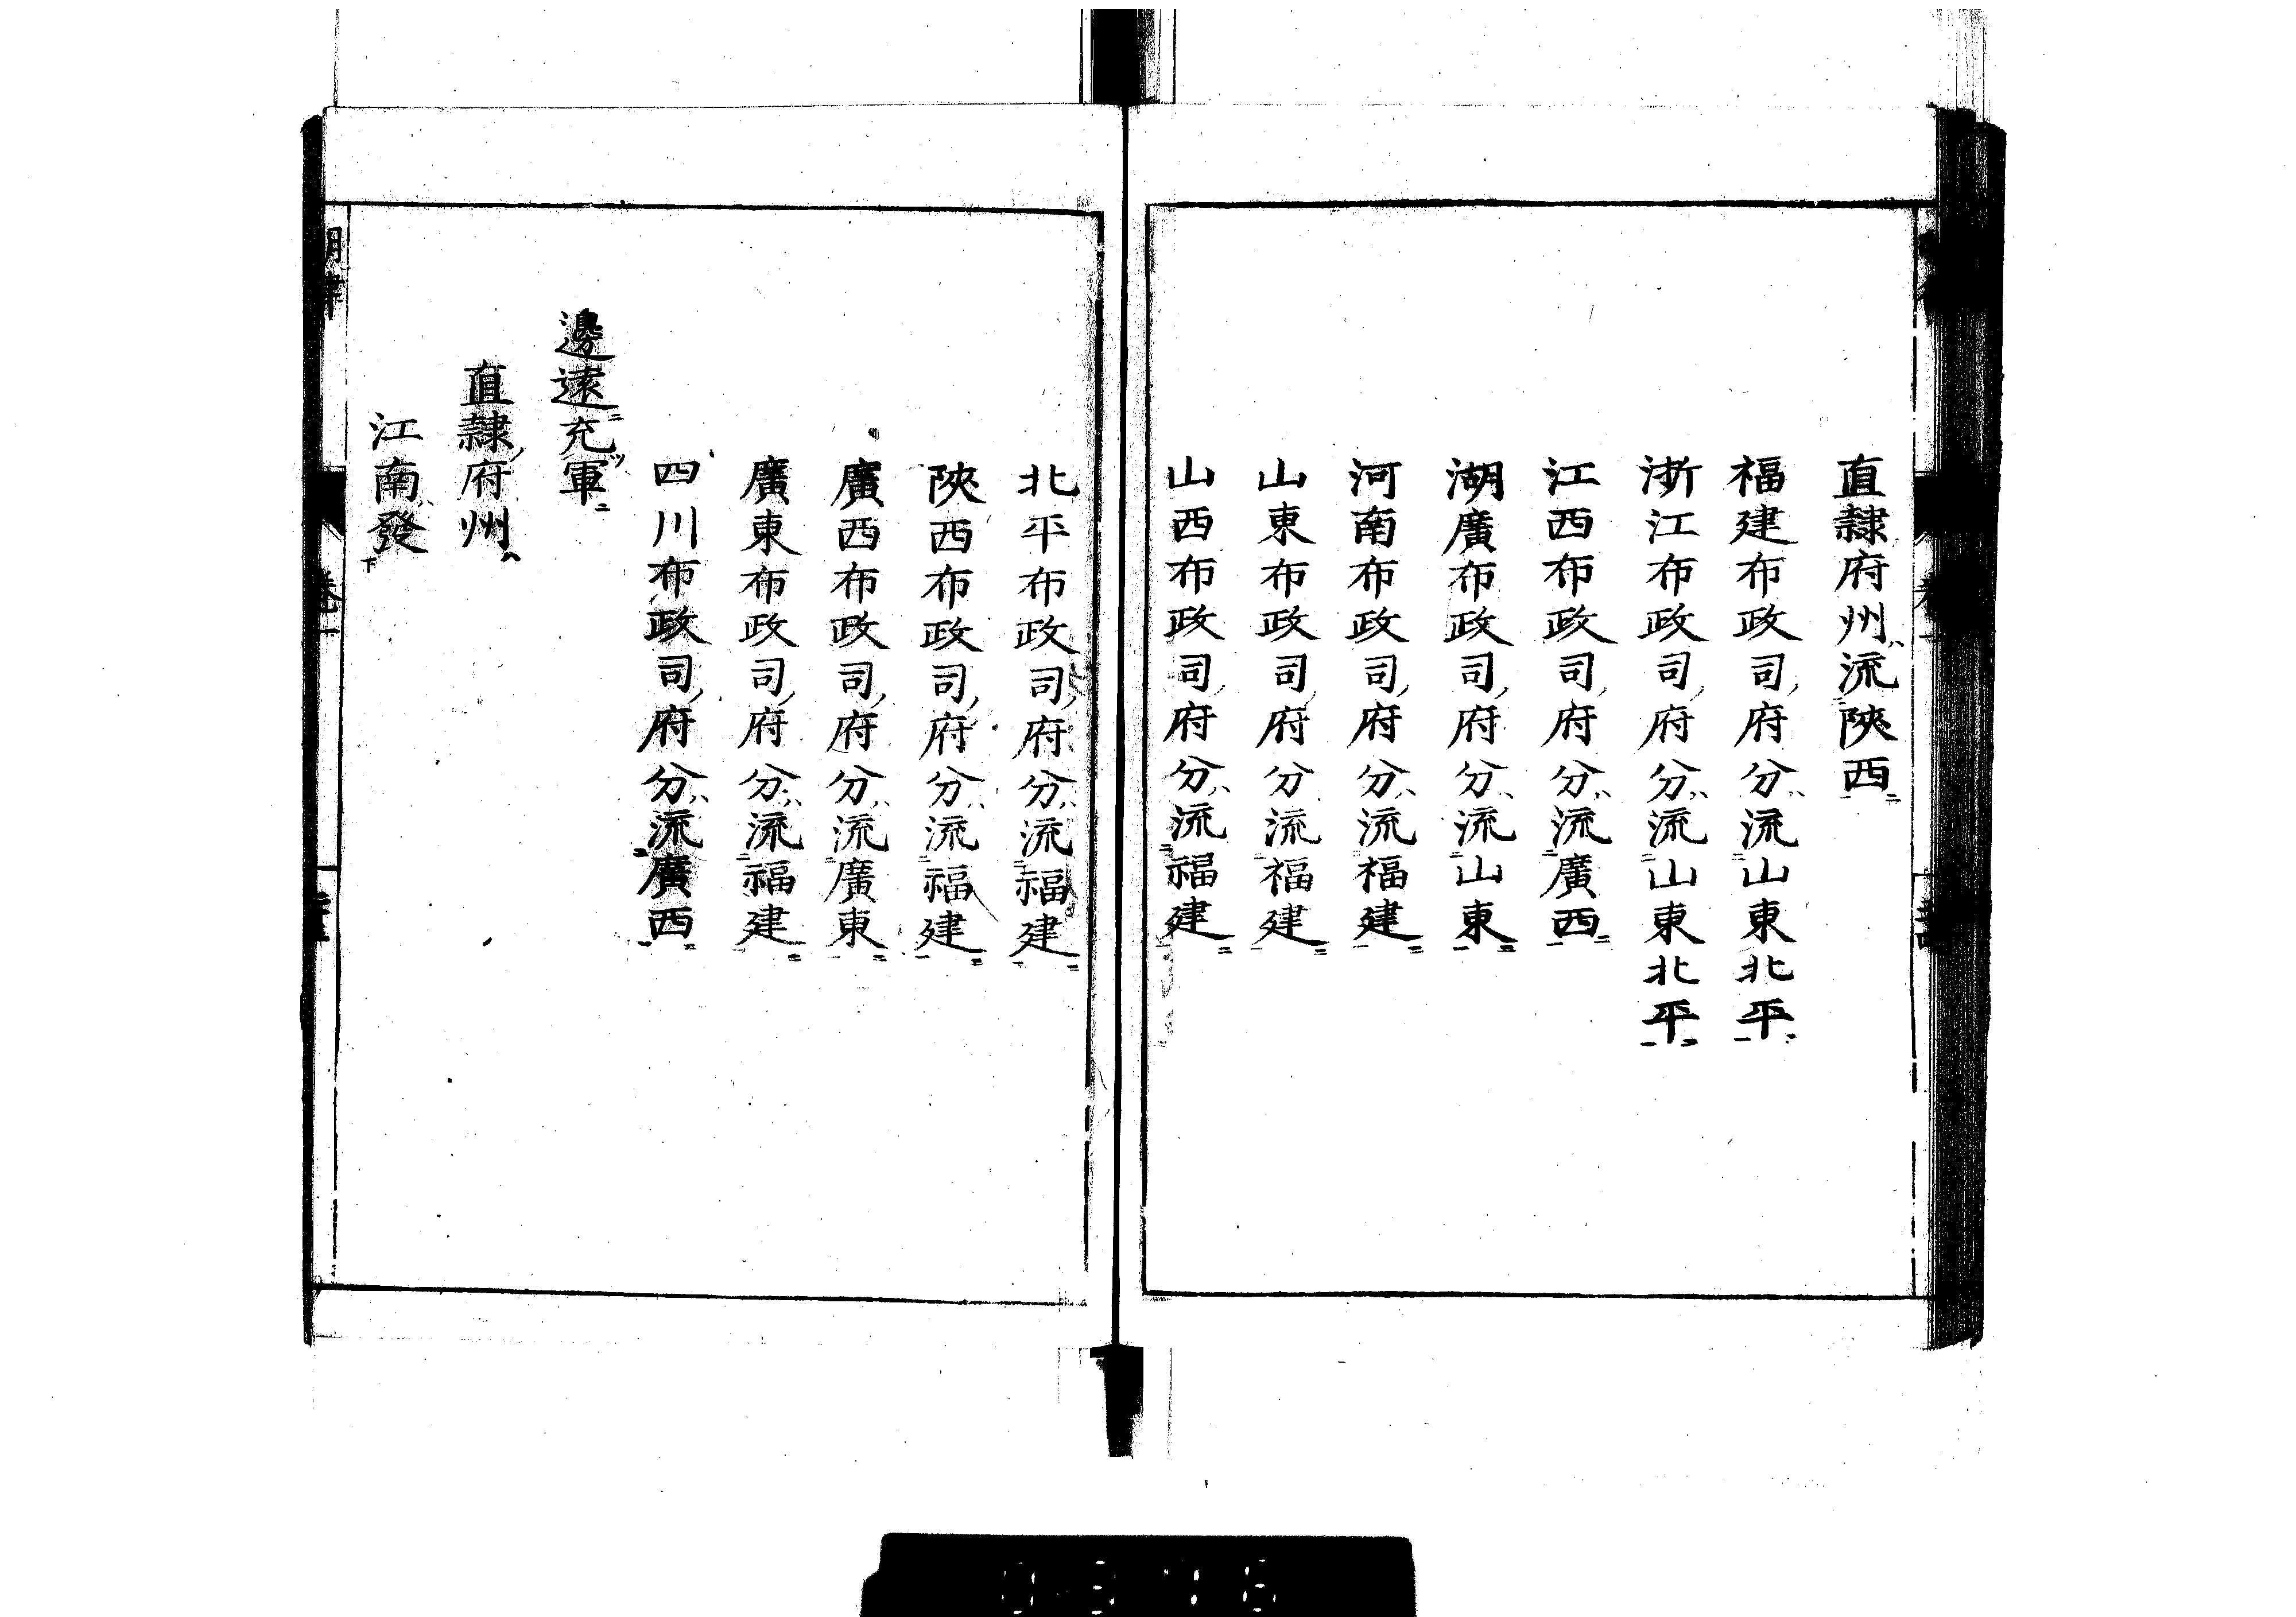 直隸府州流陝西
福建布政司府分流山東北平
浙江布政司府分流山東北平
江西布政司府分流廣西
湖廣布政司府分流山東
河南布政司府分流福建
山東布政司府分流福建
山西布政司府分流福建
北平布政司府分流福建
陝西布政司府分流福建
廣西布政司府分流廣東
廣東布政司府分流福建
四川布政司府分流廣西
邊遠充軍
直隸府州
江南發